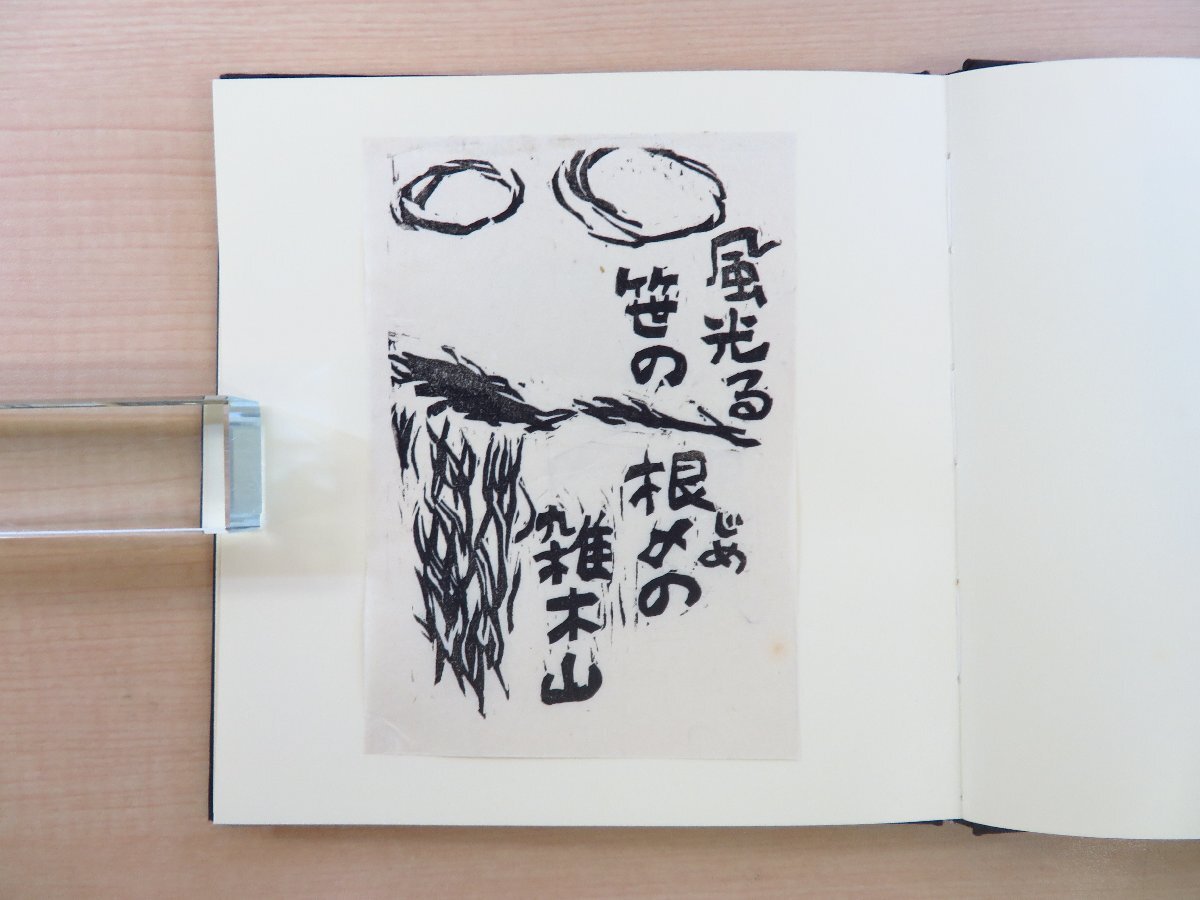 風光る
笹の
根〆の
じめ
雑木山